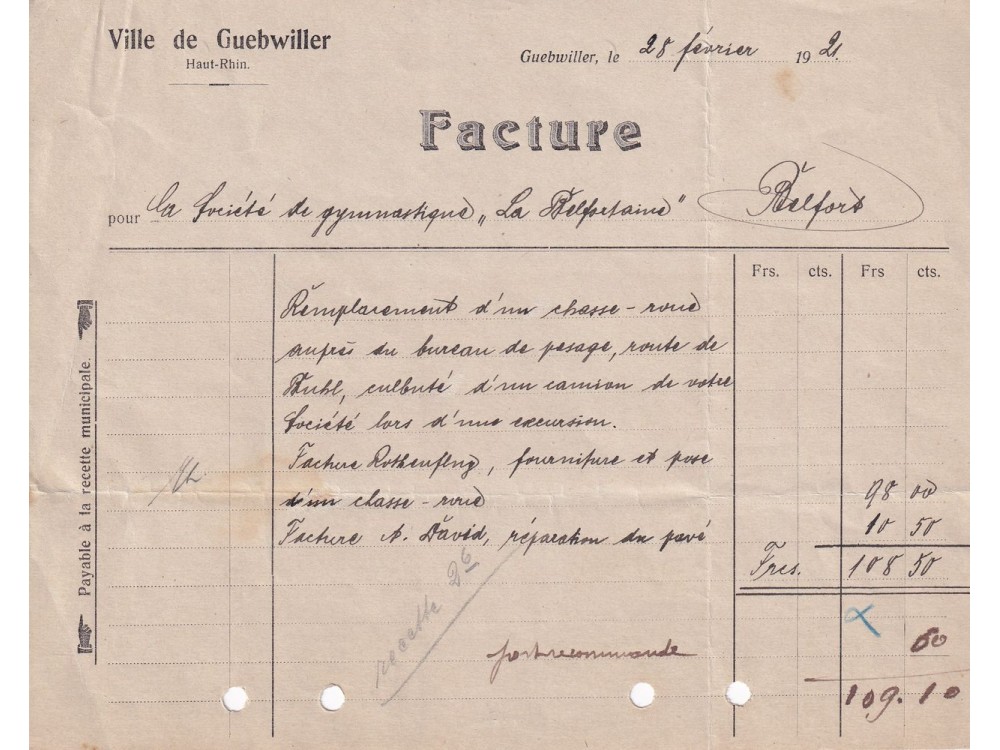 Ville de Guebwiller
Haut-Rhin.
Guebwiller, le 28 février 1921.
Facture
pour la Société de gymnastique „La Belfortaine" Belfort
Frs. cts. Frs cts.
Remplacement d'un chasse-roue
auprès du bureau de pesage, route de
Buhl, culbuté d'un camion de votre
Société lors d'une excursion.
Facture Rothenflug, fourniture et pose
d'un chasse-roue 98 00
Facture A. David, réparation du pavé 10 50
Frcs. 108 50
recette
port recommandé 60
109.10
Payable à la recette municipale.